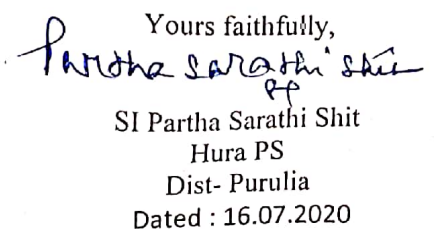 Yours faithfully,
Partha Sarathi Shit
SI Partha Sarathi Shit
Hura PS
Dist- Purulia
Dated : 16.07.2020